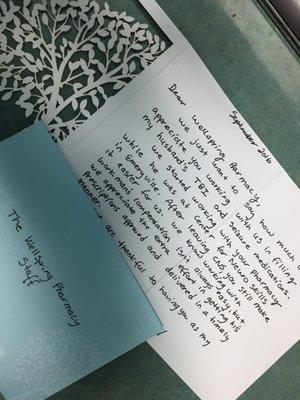 September 2016
Dear Wellspring Pharmacy,
We just want to say how much
appreciate you working with us in filling
my husband's TBI and seizure medications.
We started working with your pharmacy
while he was at Centre for Neuro skills
in Emeryville. After leaving CNS, you still make
it easier for us. We know working with
workmans compensation isn't always easy, but
we appreciate the extra effort in getting his
prescriptions approved and delivered in a timely
manner. are thankful to having you as my
The Wellspring Pharmacy
Staff